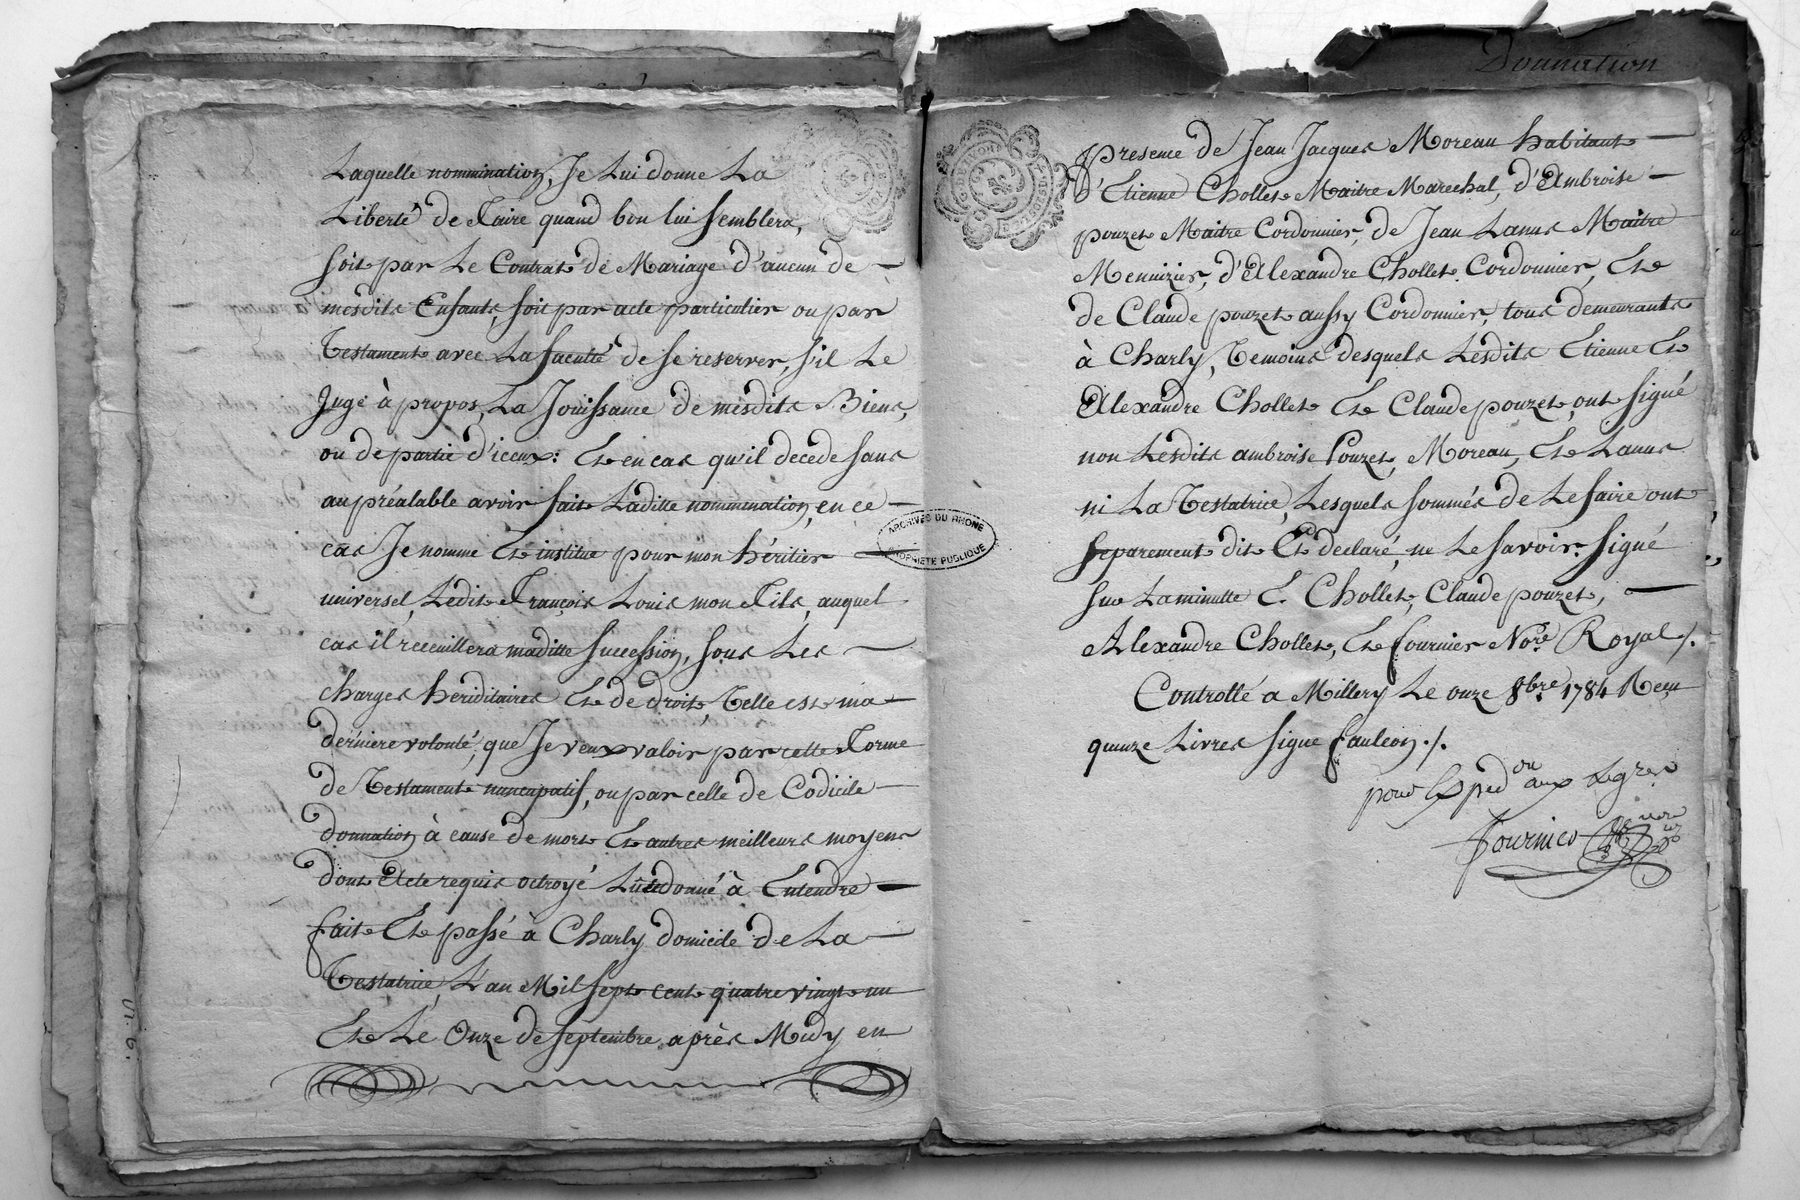 Donnation
Laquelle nommination, Je Lui donne La
Liberté de Faire quand bon lui semblera,
soit par Le Contrat de Mariage d'aucun de
mesdits Enfants, soit par acte particulier ou par
Testament avec La faculté de se reserver, s'il Le
Juge à propos, La Jouissance de mesdits Biens,
ou de partie d'iceux: Et en cas qu'il decede sans
au préalable avoir fait Laditte nommination, en ce
cas Je nomme Et institue pour mon héritier
universel, Ledit François Louis mon Fils, auquel
cas il receuillera maditte succession, sous Les
charges hériditaires Et de droit, Telle est ma
derniere volonté, que Je veux valoir par cette Forme
de Testament nuncupatif, ou par celle de Codicile
donnation à cause de mort Et autres meilleurs moyens
dont Acte requis octroyé Lu donné à Entendre
fait Et passé à Charly domicile de La
Testatrice, L'an Mil sept cent quatre vingt un
Et Le Onze de septembre après Midy en
presence de Jean Jacques Moreau habitant
d'Etienne Chollet Maitre Marechal, d'Ambroise
pouzet Maitre Cordonnier, de Jean Lanus Maitre
Menuizier, d'Alexandre Chollet Cordonnier, Et
de Claude pouzet aussy Cordonnier, tous demeurants
à Charly, Temoins desquels Lesdits Etienne Et
Alexandre Chollet Et Claude pouzet, ont signé
non Lesdits ambroise Pouzet, Moreau, Et Lanus
ni La Testatrice, Lesquels sommés de Le faire ont
separement dit Et declaré, ne Le savoir. signé
sur La minutte E. Chollet, Claude pouzet,
Alexandre Chollet, Et fournier No.re Royal ./.
Controllé a Millery Le onze 8bre 1784 Recu
quinze Livres signé fauleon ./.
pour Exped.on aux
Fournier
ARCHIVES DU RHONE
PROPRIETE PUBLIQUE